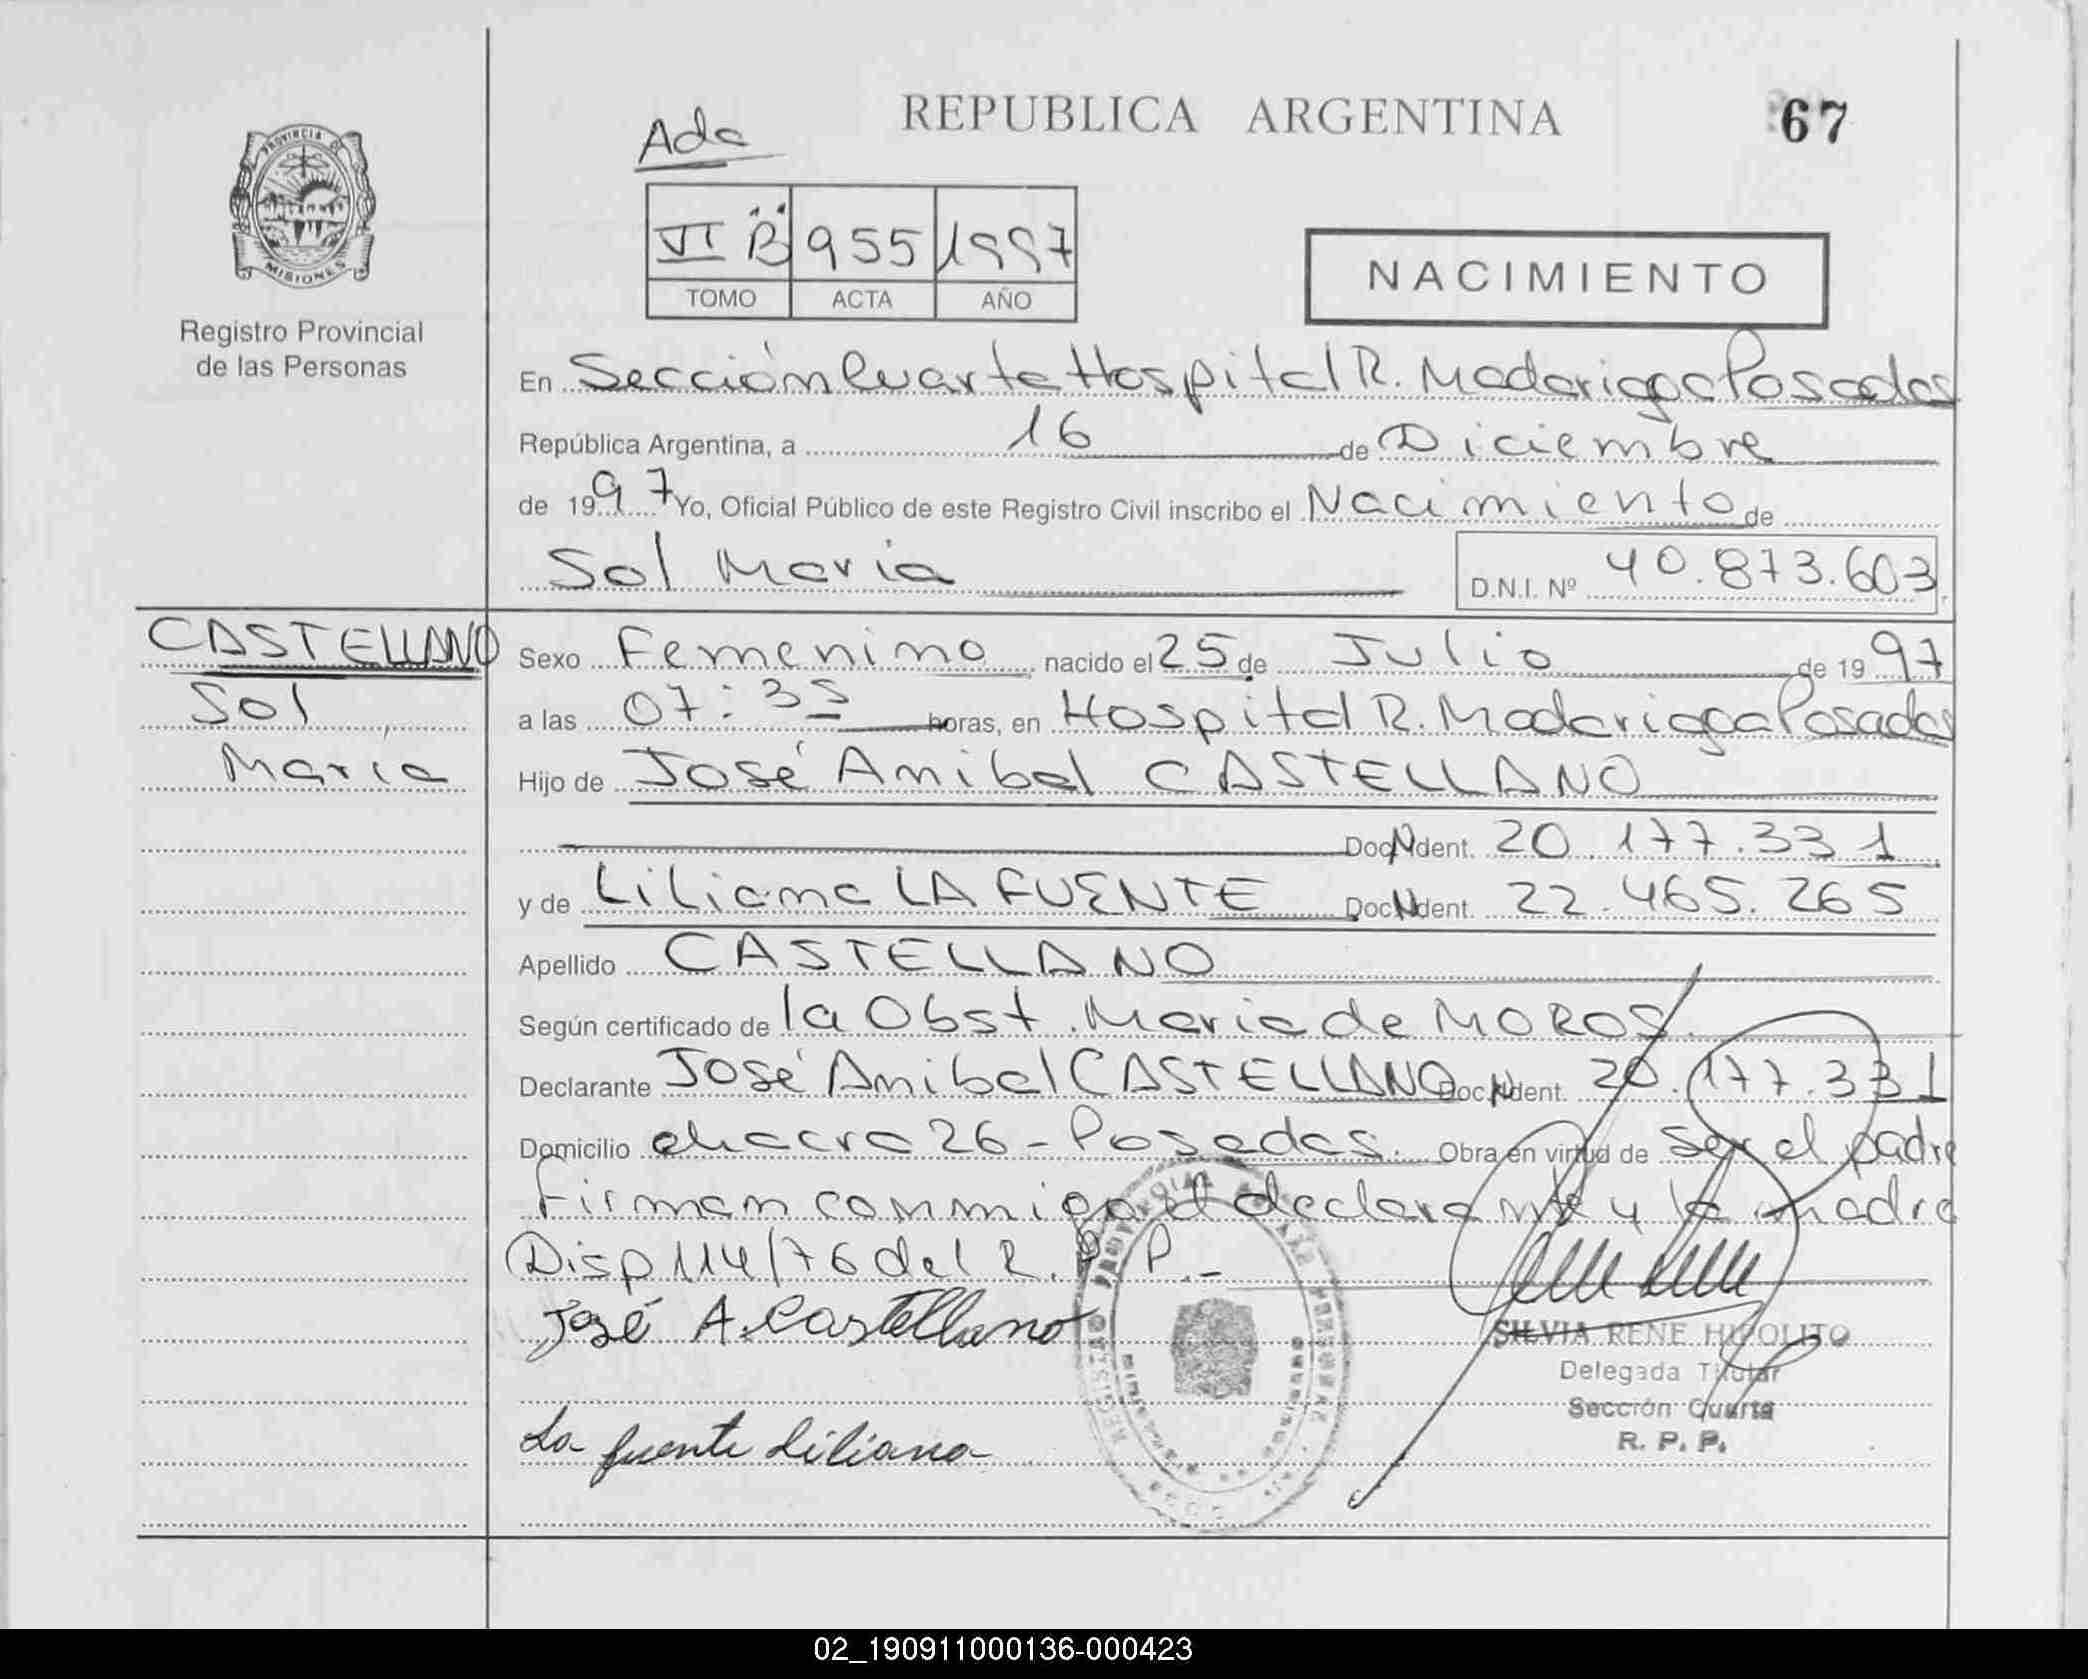 REPUBLICA ARGENTINA
67
Ada
VI "B" 955 1997
TOMO ACTA AÑO
NACIMIENTO
PROVINCIA DE
MISIONES
Registro Provincial
de las Personas
En Sección Cuarta Hospital R. Madariaga Posadas
República Argentina, a 16 de Diciembre
de 1997 Yo, Oficial Público de este Registro Civil inscribo el Nacimiento de
Sol Maria D.N.I. Nº 40.873.603
CASTELLANO
Sol
Maria
Sexo Femenino nacido el 25 de Julio de 1997
a las 07:35 horas, en Hospital R. Madariaga Posadas
Hijo de José Anibal CASTELLANO
Doc N Ident. 20.177.331
y de Liliana LA FUENTE Doc N Ident. 22.465.265
Apellido CASTELLANO
Según certificado de la Obst. Maria de MOROS.
Declarante José Anibal CASTELLANO Doc N Ident. 20.177.331
Domicilio chacra 26 - Posadas. Obra en virtud de ser el padre
Firman conmigo el declarante y la madre
Disp 114/76 del R.P.P.-
José A. Castellano
SILVIA RENE HIPOLITO
Delegada Titular
Sección Cuarta
R. P. P.
La fuente Liliana
02_190911000136-000423